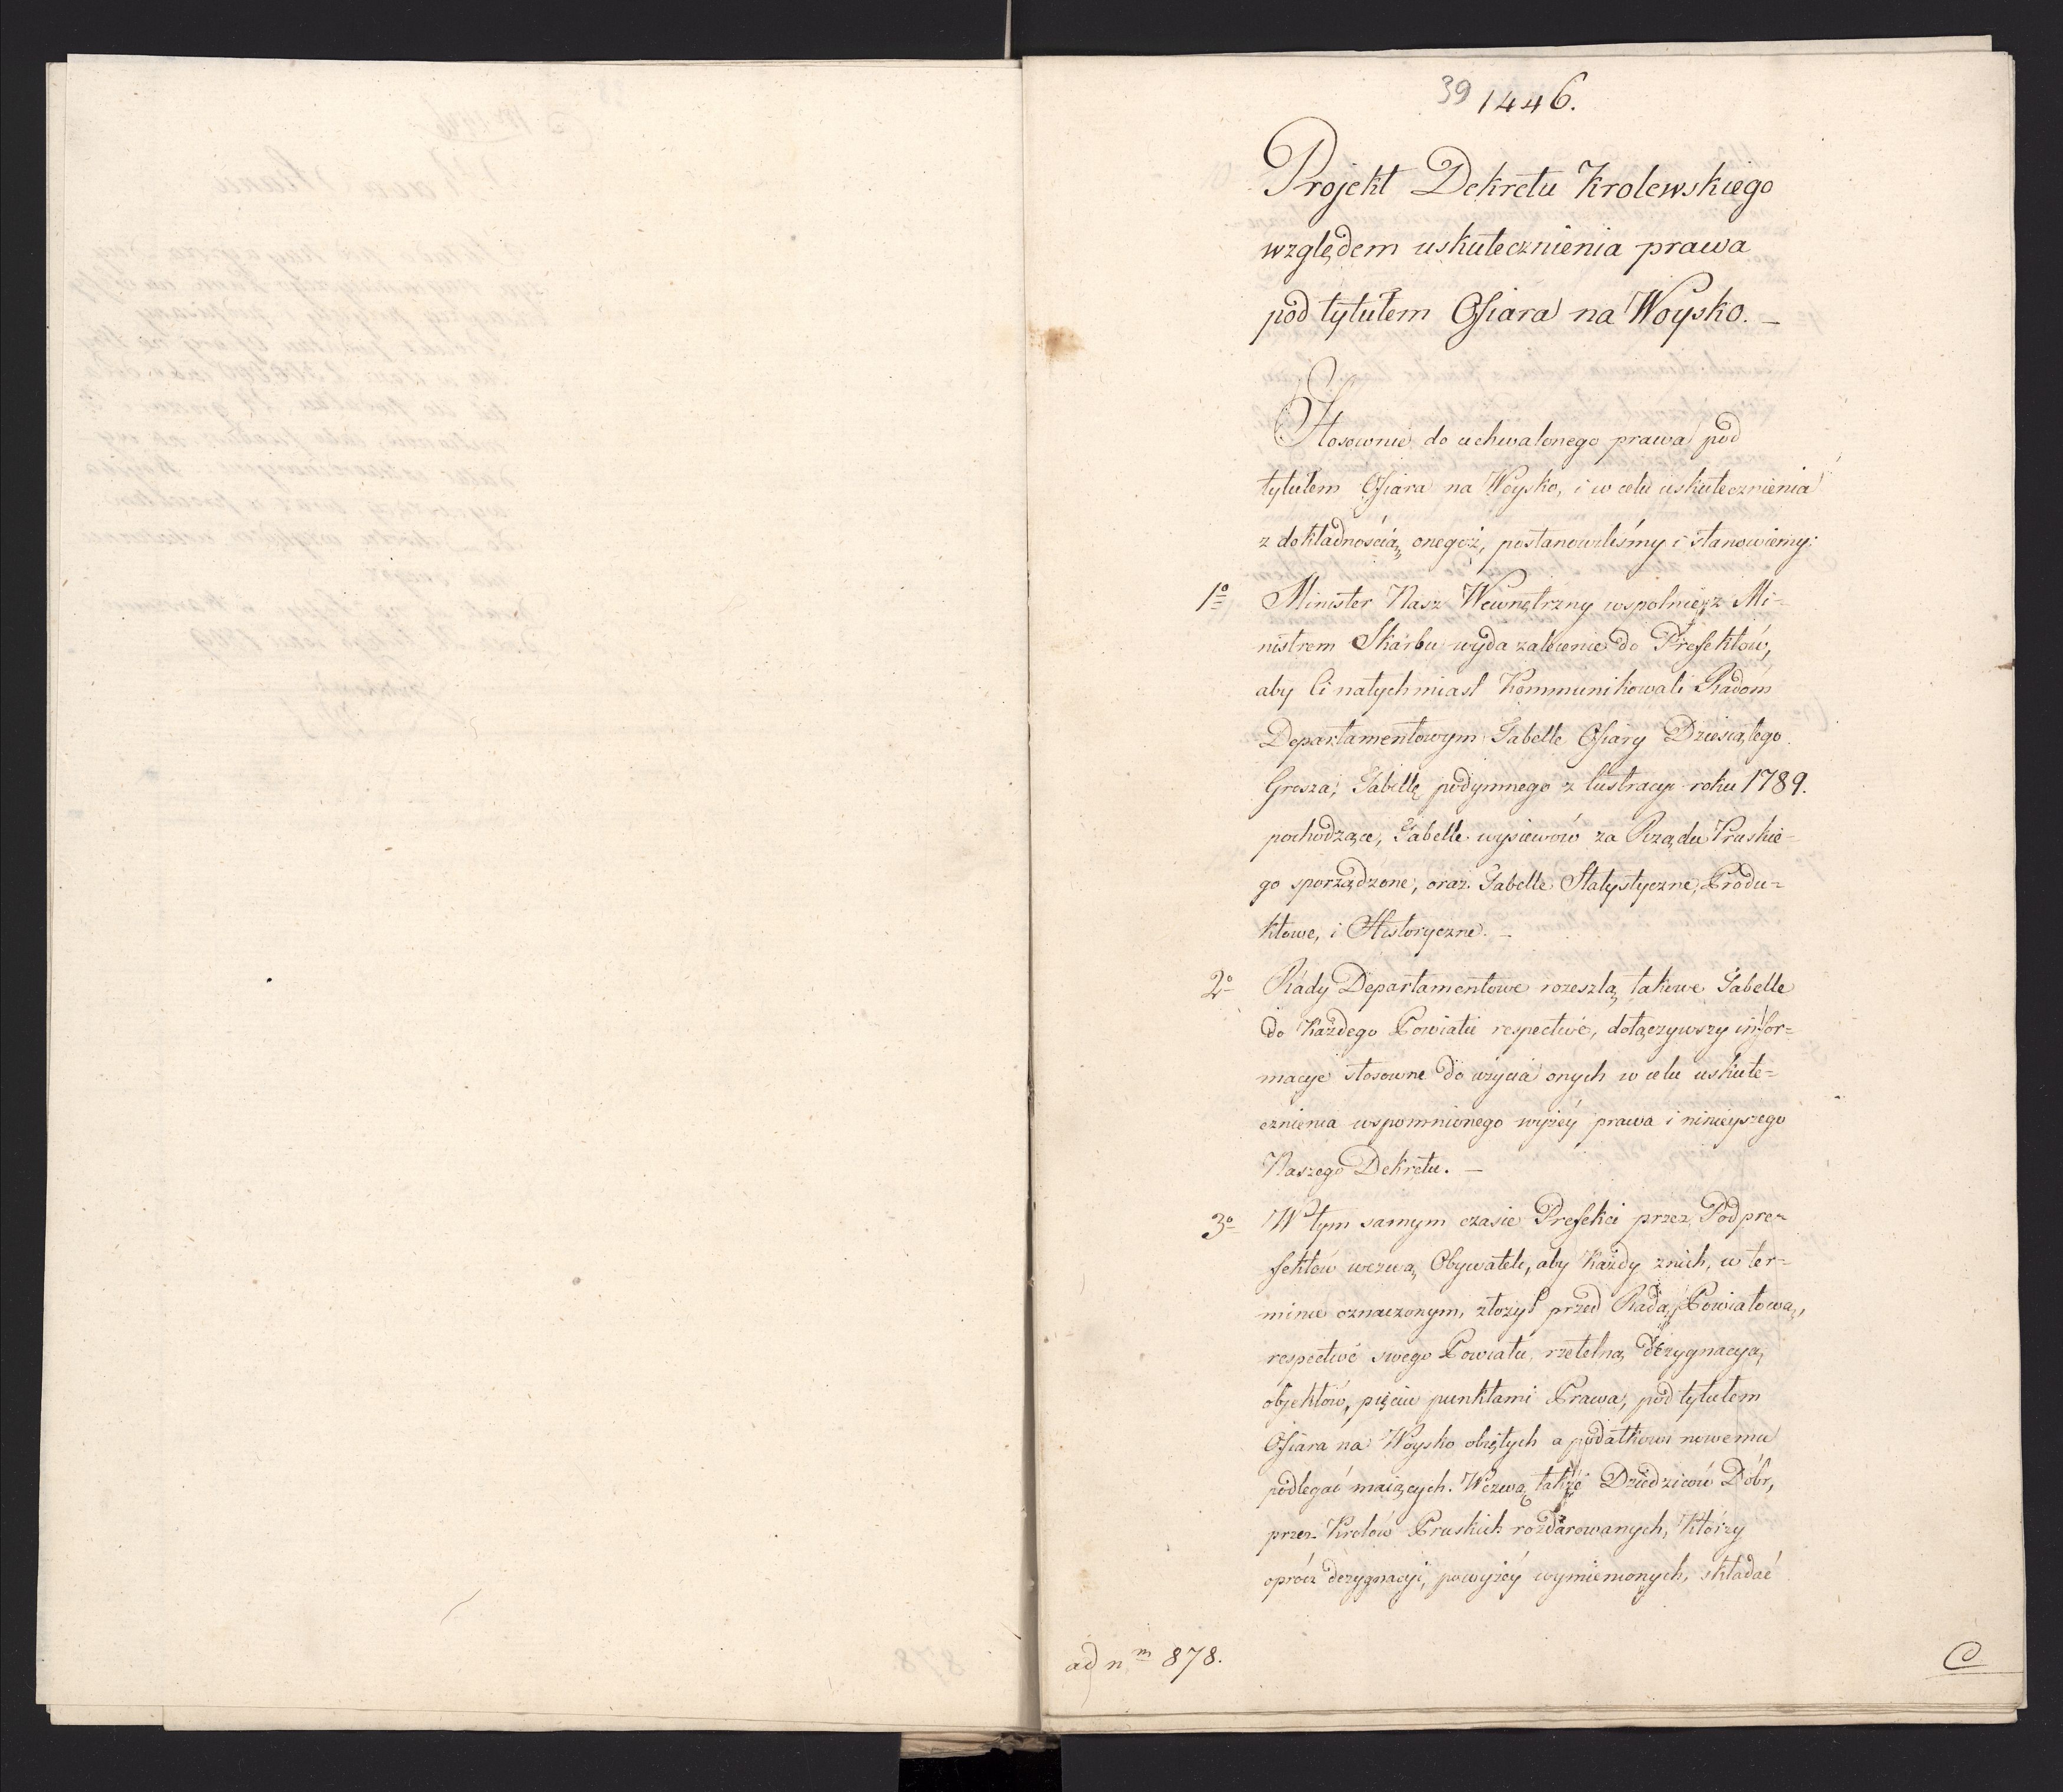 39 1446.
Projekt Dekretu Krolewskiego
względem uskutecznienia prawa
pod tytułem Ofiara na Woysko. –
Stosownie do uchwalonego prawa pod
tytułem Ofiara na Woysko, i w celu uskutecznienia
z dokładnością onegoż, postanowiliśmy i stanowiemy:
1o Minister Nasz Wewnętrzny wspolnie z Mi-
nistrem Skarbu wyda zalecenie do Prefektów,
aby Ci natychmiast Kommunikowali Radom
Departamentowym Tabelle Ofiary Dziesiątego
Grosza, Tabellę podymnego z lustracyi roku 1789.
pochodzące, Tabelle wysiewów za Rządu Pruskie-
go sporządzone, oraz Tabelle Statystyczne, Produ=
ktowe, i Historyczne. –
2o Rady Departamentowe rozeszlą takowe Tabelle
do Każdego Powiatu respective, dołączywszy infor=
macye stosowne do użycia onych w celu uskute=
cznienia wspomnionego wyżéy prawa i ninieyszego
Naszego Dekretu. –
3o W tym samym czasie Prefekci przez Podpre=
fektów wezwą Obywateli, aby Każdy z nich, w ter=
minie oznaczonym, złożył przed Radą Powiatową,
respective swego Powiatu, rzetelną dezygnacyą
objektów, pięciu punktami Prawa, pod tytułem
Ofiara na Woysko obiętych a podatkowi nowemu
podlegać maiących. Wezwą także Dziedziców Dóbr,
przez Krolów Pruskich rozdarowanych, Którzy
oprócz dezygnacyi, powyżéy wymienionych, składać
ad nm 878.